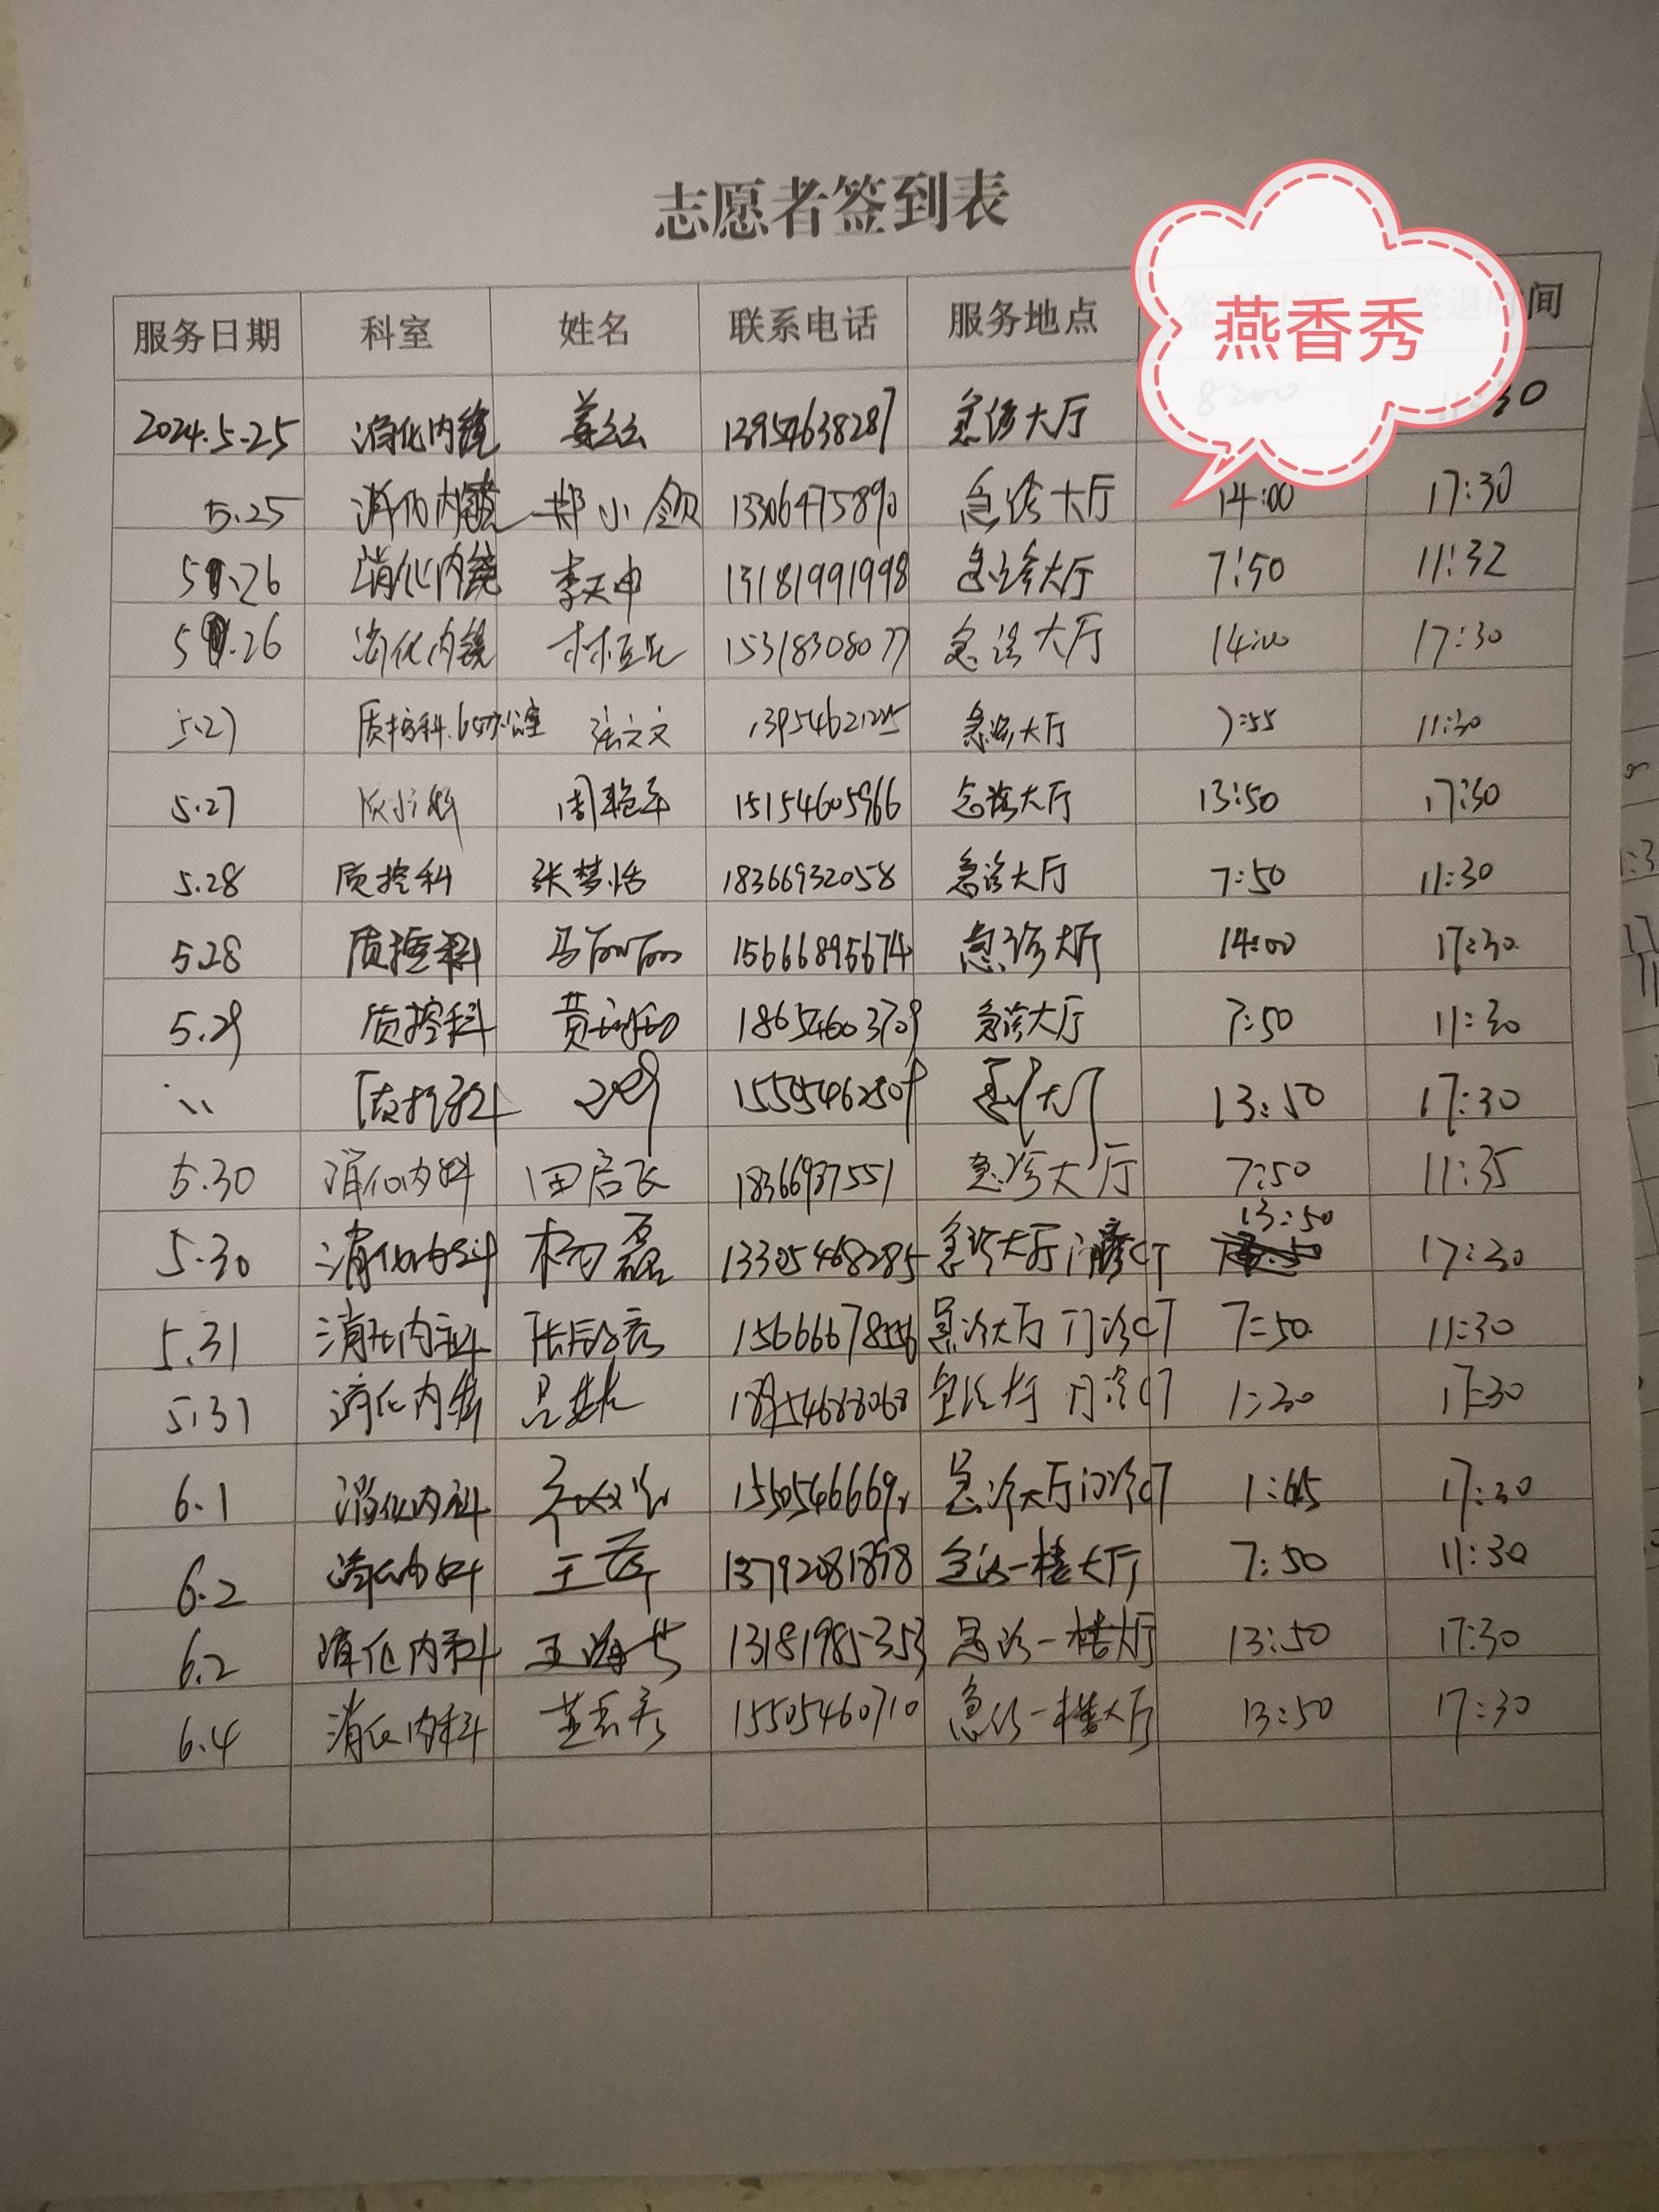 志愿者签到表
燕香秀
服务日期 科室 姓名 联系电话 服务地点 签退时间
2024.5.25 消化内镜 姜幺幺 急诊大厅
5.25 消化内镜 郑小 13306475890 急诊大厅 14:00 17:30
5.26 消化内镜 李天申 13181991998 急诊大厅 7:50 11:32
5.26 消化内镜 15318308077 急诊大厅 14:00 17:30
5.27 质控科 张文文 急诊大厅 7:55 11:30
5.27 质控科 周艳平 15154605966 急诊大厅 13:50 17:30
5.28 质控科 张梦怡 18366932058 急诊大厅 7:50 11:30
5.28 质控科 马丽丽 15666895674 急诊大厅 14:00 17:30
5.29 质控科 黄 18654603709 急诊大厅 7:50 11:30
〃 质控科 急诊大厅 13:50 17:30
5.30 消化内科 田启飞 18366937551 急诊大厅 7:50 11:35
5.30 消化内科 杨磊 13305468285 急诊大厅 门诊CT 13:50 17:30
5.31 消化内科 急诊大厅 门诊CT 7:50 11:30
5.31 消化内科 吕 急诊大厅 门诊CT 1:30 17:30
6.1 消化内科 急诊大厅 门诊CT 1:45 17:30
6.2 消化内科 王 急诊一楼大厅 7:50 11:30
6.2 消化内科 王海 13181985353 急诊一楼大厅 13:50 17:30
6.4 消化内科 15505460710 急诊一楼大厅 13:50 17:30